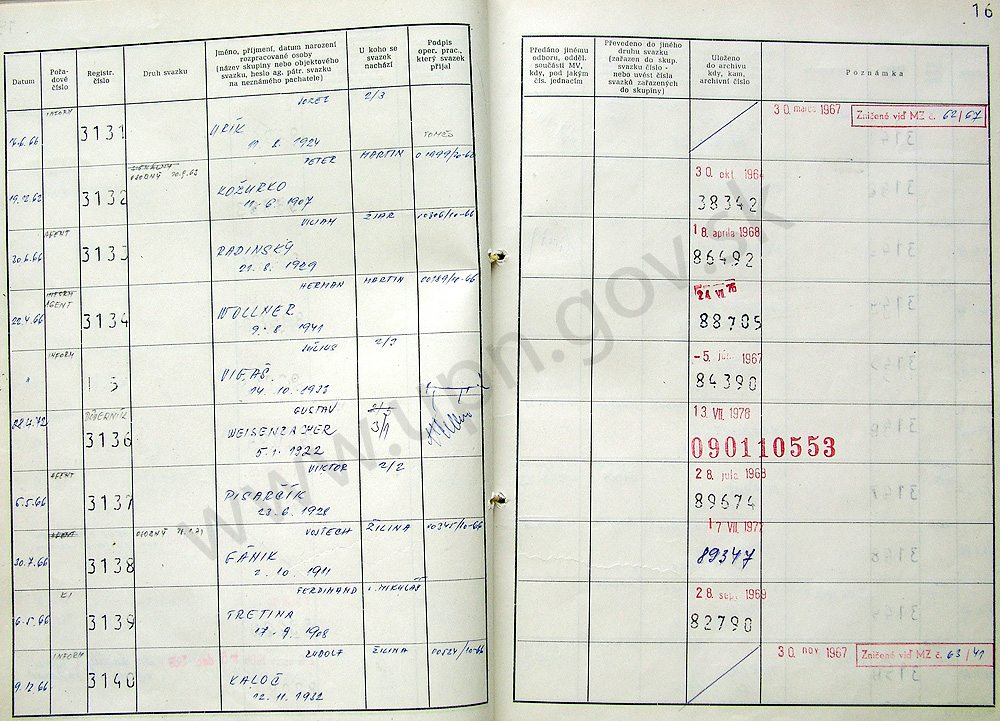 16
Datum
Pořa-
dové
číslo
Registr.
číslo
Druh svazku
Jméno, příjmení, datum narození
rozpracované osoby
(název skupiny nebo objektového
svazku, heslo ag. pátr. svazku
na neznámého pachatele)
U koho se
svazek
nachází
Podpis
oper. prac.,
který svazek
přijal
Předáno jinému
odboru, odděl.
součásti MV,
kdy, pod jakým
čís. jednacím
Převedeno do jiného
druhu svazku
(zařazen do skup.
svazku číslo -
nebo uvést čísla
svazků zařazených
do skupiny)
Uloženo
do archivu
kdy, kam,
archivní číslo
Poznámka
INFORM
JOZEF 2/3
3131 URÍK
1924
TOMEŠ
30. marec 1967
Zničené viď MZ č. 62/67
OSOBNÝ
PETER MARTIN
19.12.62 3132 KOŽURKO
11. 6. 1907
30. okt. 1964
38342
AGENT
VILIAM ŽIAR 00806/10-66
20.6.66 3133 RADINSKÝ
21. 8. 1929
18. apríla 1968
86492
INFORM
AGENT
HERMAN MARTIN 00189/10-66
22.4.66 3134 WOLLNER
9. 8. 1941
24 VI 76
88705
INFORM
JÚLIUS 2/3
" VIGAŠ
14. 10. 1933
-5. 1967
84390
DÔVERNÍK
GUSTAV 3/1
28.4.72 3136 WEISENZACHER
5. 1. 1922
13. VII. 1978
090110553
AGENT
VIKTOR 2/2
6.5.66 3137 PISARČÍK
23. 6. 1928
28. júla 1968
89674
AGENT
OSOBNÝ
VOJTECH ŽILINA 00345/10-66
30.7.66 3138 GÁNIK
2. 10. 1911
17 VII. 1972
89347
KI
FERDINAND L. MIKULÁŠ
6.5.66 3139 TRETINA
17. 9. 1908
28. sept. 1969
82790
INFORM
RUDOLF ŽILINA 00524/10-66
9.12.66 3140 KALOČ
12. 11. 1932
30. nov 1967
Zničené viď MZ č. 63/41
www.upn.gov.sk